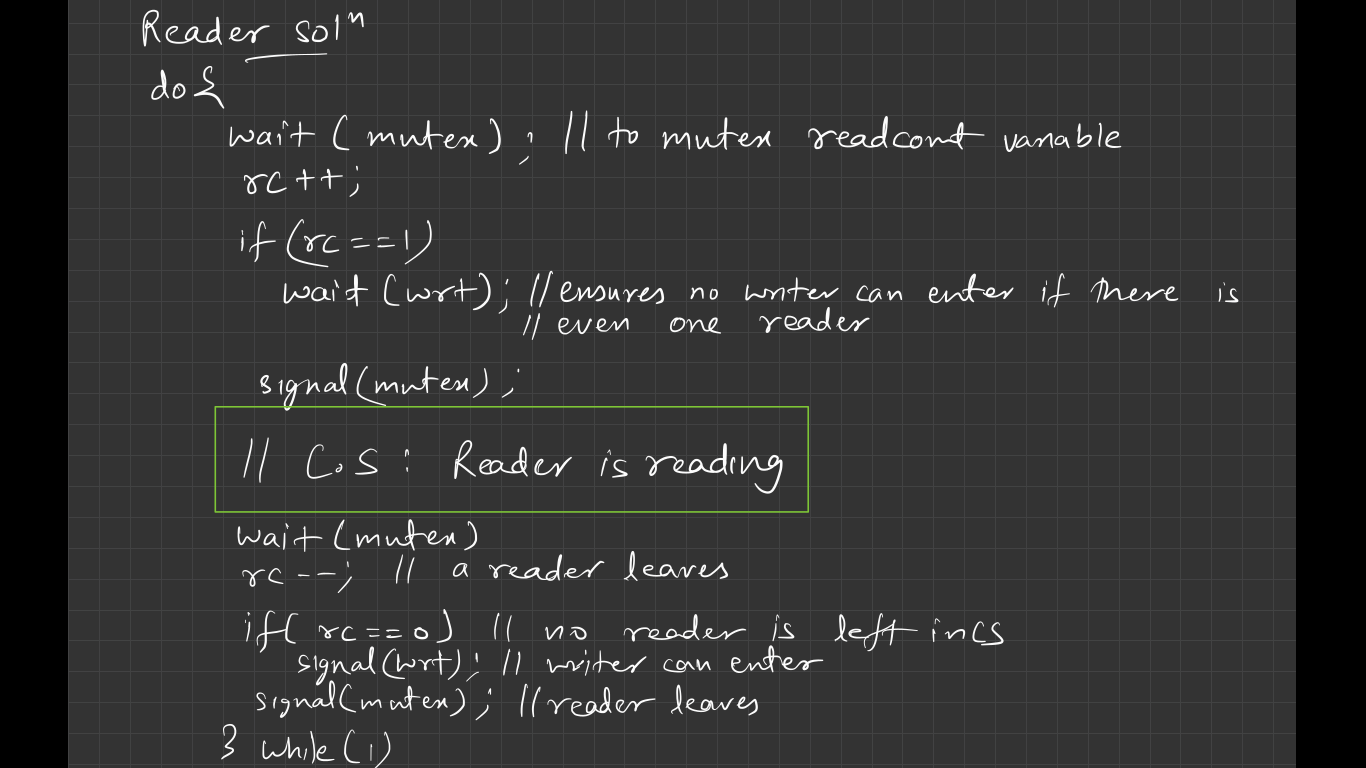 Reader solⁿ
do {
wait (mutex) ; // to mutex readcont variable
rc ++ ;
if (rc == 1)
wait (wrt) ; // ensures no writer can enter if there is
// even one reader
signal (mutex) ;
// C.S : Reader is reading
wait (mutex)
rc -- ; // a reader leaves
if ( rc == 0 ) // no reader is left in CS
signal (wrt) ; // writer can enter
signal (mutex) ; // reader leaves
} while (1)